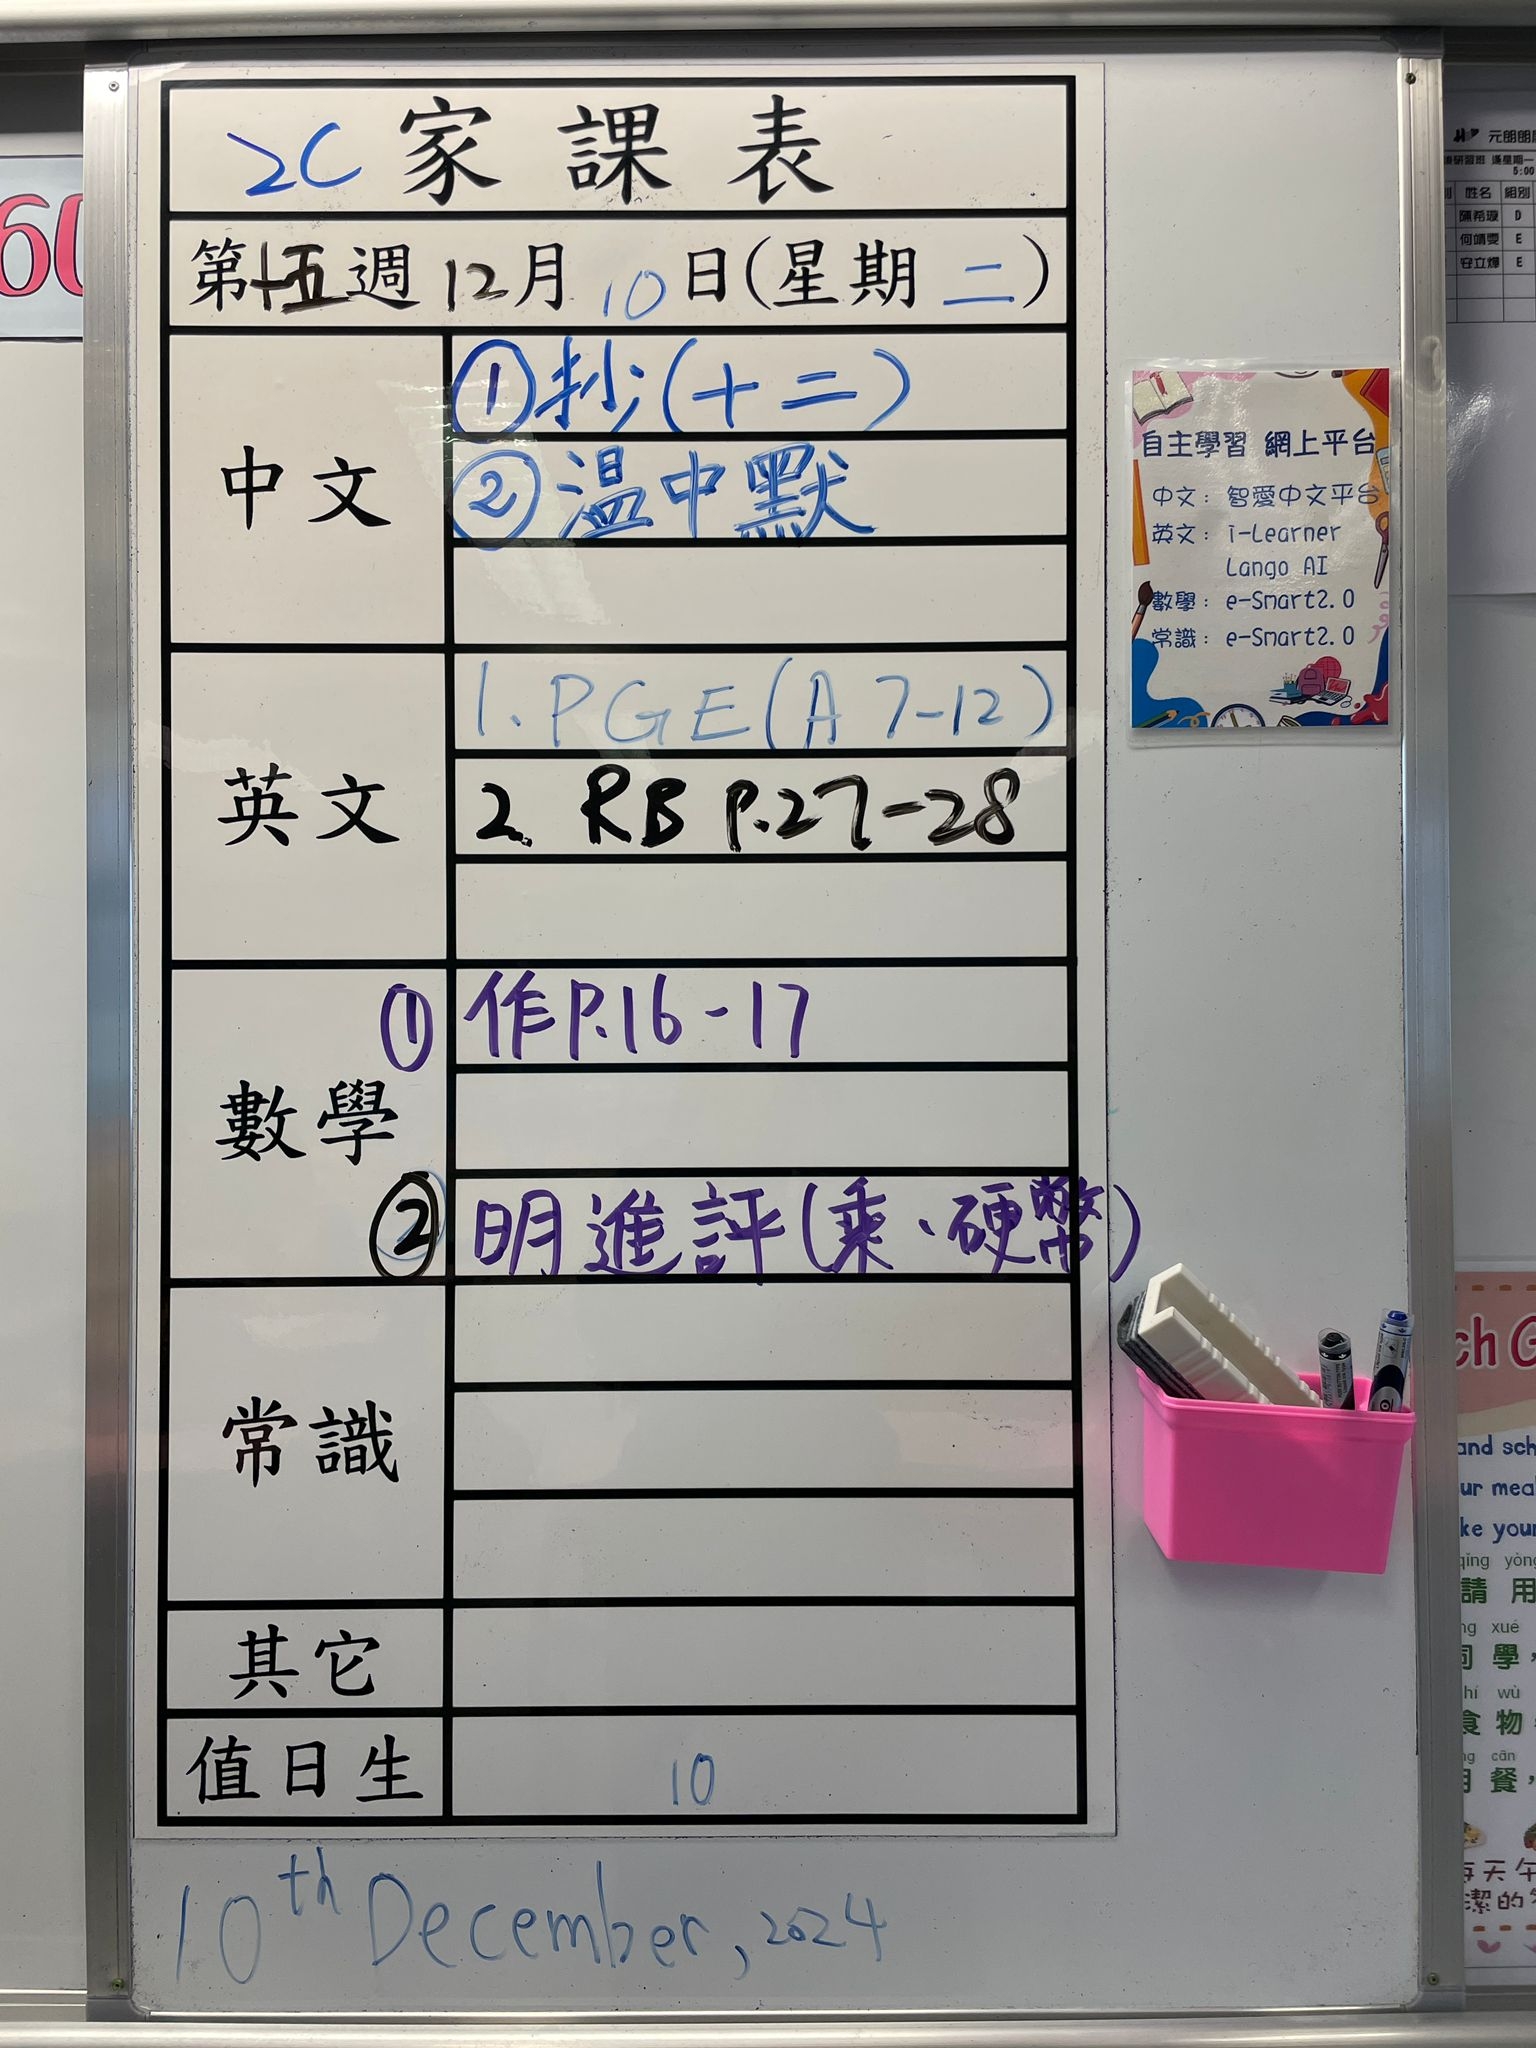 2C 家課表
第十五週 12月 10日(星期 二)
中文
①抄(十二)
②溫中默
英文
1. PGE(A 7-12)
2. RB P.27-28
數學
① 作P.16-17
② 明進評(乘、硬幣)
常識
其它
值日生
10
10th December, 2024
自主學習 網上平台
中文: 智愛中文平台
英文: i-Learner
Lango AI
數學: e-Smart2.0
常識: e-Smart2.0
60
元朗朗
5:00
姓名 組別
陳希璇 D
何靖雯 E
安立煇 E
ch G
and sch
ur mea
ke your
qǐng yòng
請 用
xué
同 學,
shí wù
食 物
cān
用 餐,
每天午
潔的